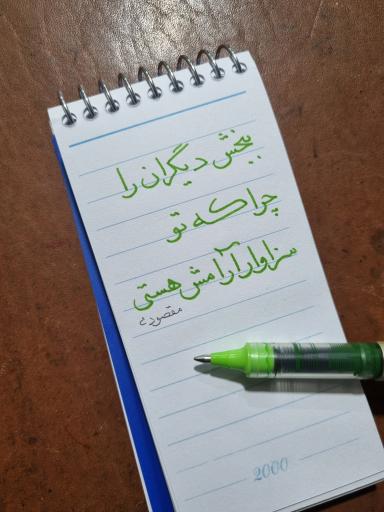 ببخش دیگران را
چرا که تو
سزاوار آرامش هستی
مقصودی
2000